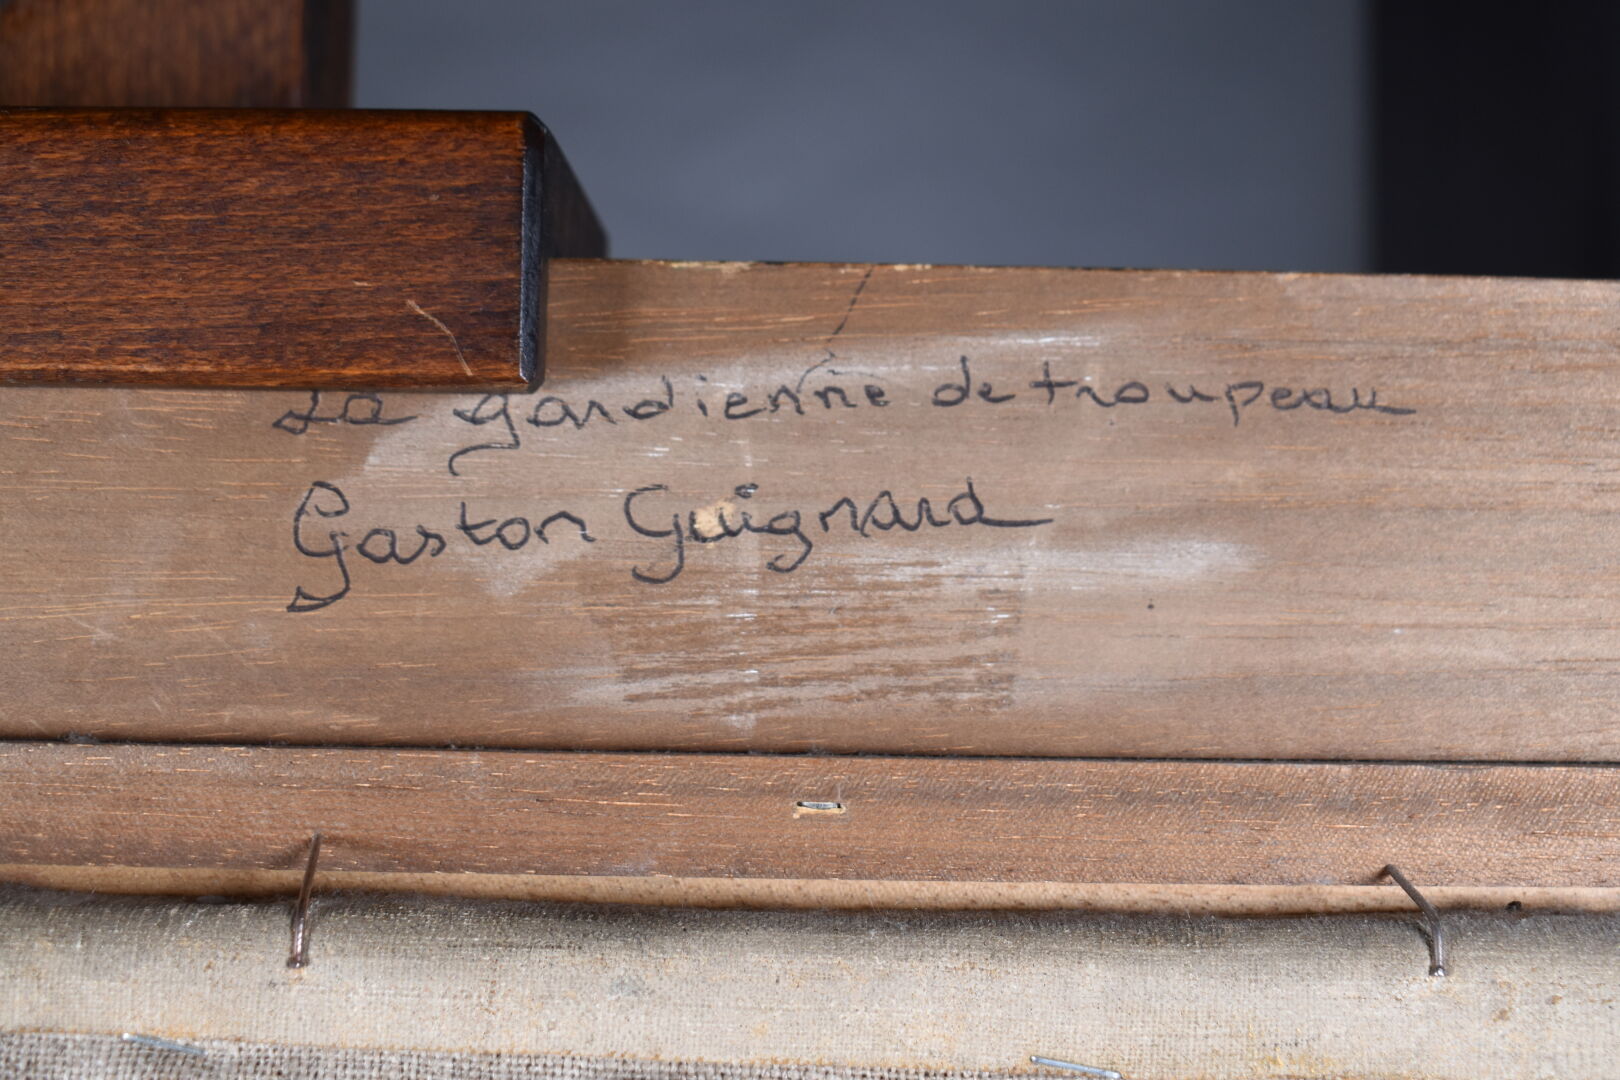 La gardienne de troupeau
Gaston Guignard